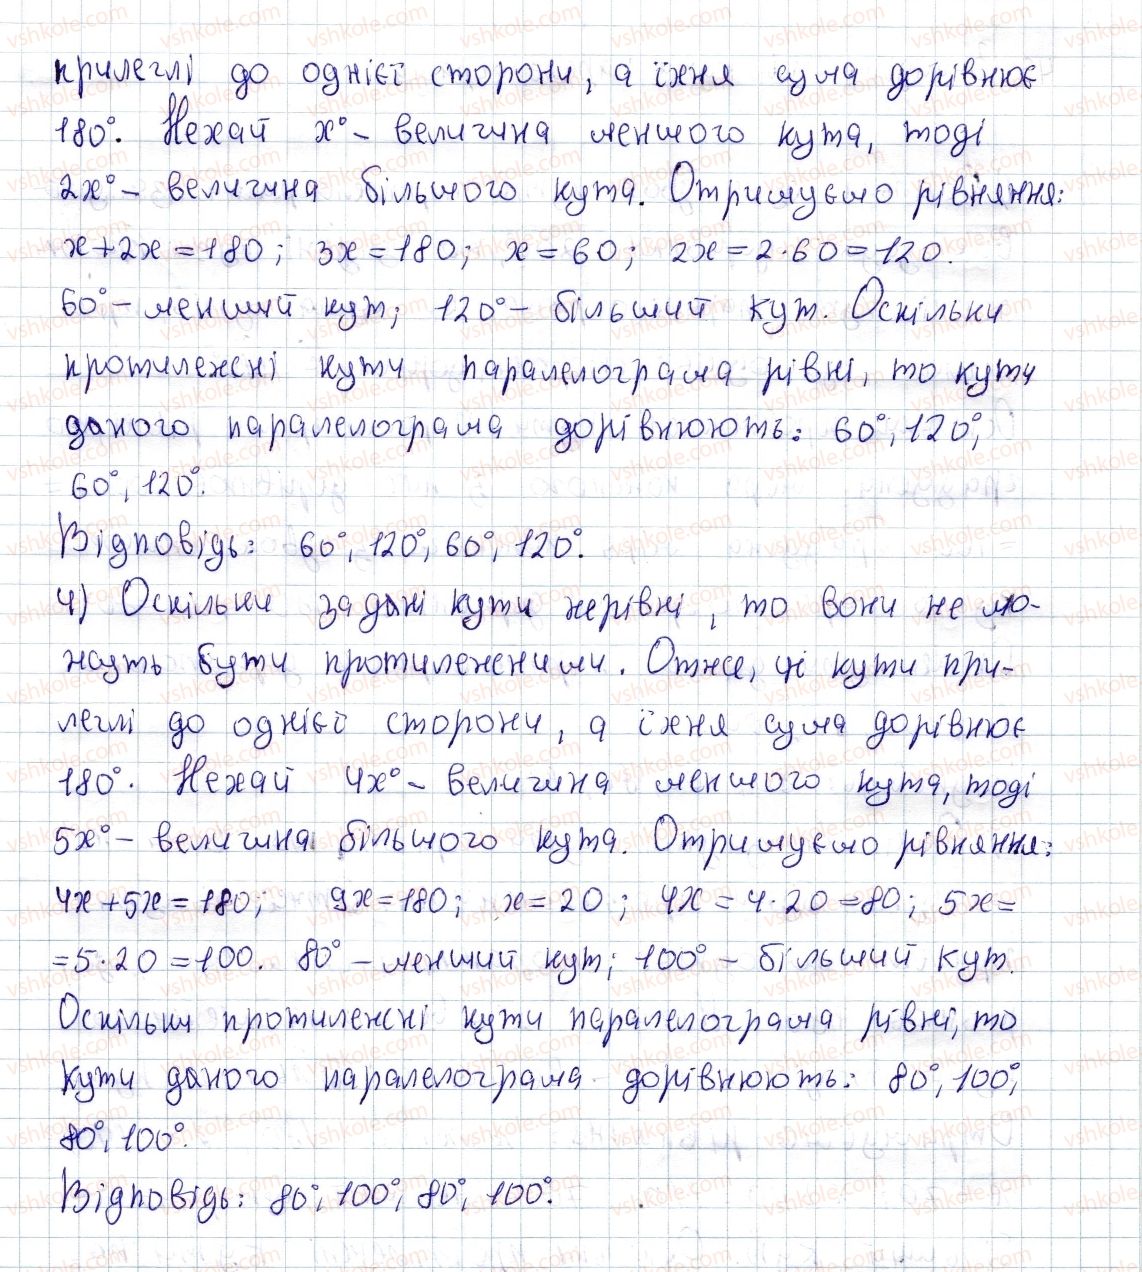 прилеглі до однієї сторони, а їхня сума дорівнює
180°. Нехай x° – величина меншого кута, тоді
2x° – величина більшого кута. Отримуємо рівняння:
x + 2x = 180; 3x = 180; x = 60; 2x = 2·60 = 120.
60° – менший кут; 120° – більший кут. Оскільки
протилежні кути паралелограма рівні, то кути
даного паралелограма дорівнюють: 60°, 120°,
60°, 120°.
Відповідь: 60°, 120°, 60°, 120°.
4) Оскільки задані кути нерівні, то вони не мо-
жуть бути протилежними. Отже, ці кути при-
леглі до однієї сторони, а їхня сума дорівнює
180°. Нехай 4x° – величина меншого кута, тоді
5x° – величина більшого кута. Отримуємо рівняння:
4x + 5x = 180; 9x = 180; x = 20; 4x = 4·20 = 80; 5x =
= 5·20 = 100. 80° – менший кут; 100° – більший кут.
Оскільки протилежні кути паралелограма рівні, то
кути даного паралелограма дорівнюють: 80°, 100°,
80°, 100°.
Відповідь: 80°, 100°, 80°, 100°.